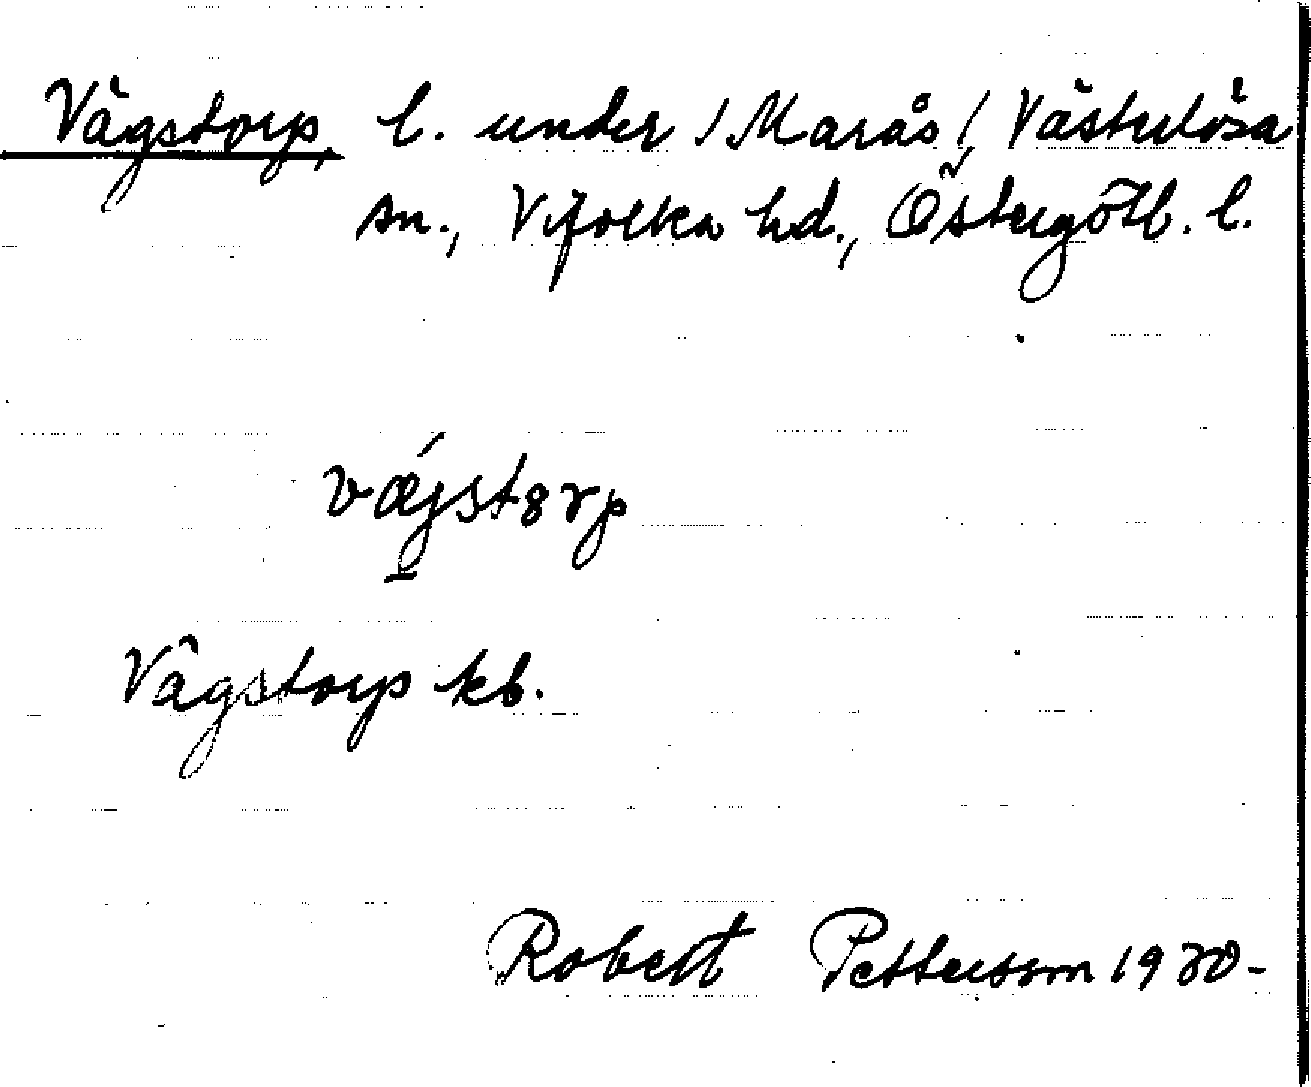 Vägstorp, l. under /Marås/, Västerlösa
sn., Vifolka hd., Östergötl. l.
væ̀jstȣrp
Vägstorp kb.
Robert Pettersson 1930-